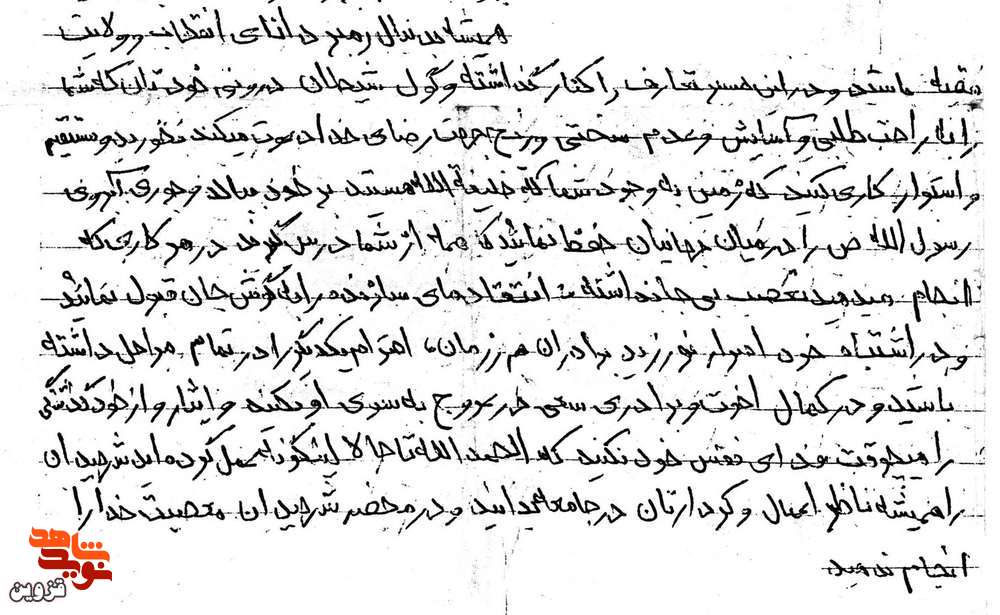 همیشه بدنبال رهبر دانای انقلاب و ولایت
فقیه باشید و در این مسیر تعارف را کنار گذاشته و گول شیطان درونی خودتان که شما
را به راحت طلبی و آسایش و عدم سختی و رنج جهت رضای خدا دعوت میکند نخورید و مستقیم
و استوار کاری کنید که زمین به وجود شما که خلیفة الله هستند بر خود ببالد و جوری آبروی
رسول الله ص را در میان جهانیان حفظ نمائید که همه از شما درس گیرند در هر کاری که
انجام میدهید تعصب بی جا نداشته انتقادهای سازنده را به گوش جان قبول نمائید
و در اشتباه خود اصرار نورزید برادران هم رزمان، احترام یکدیگر را در تمام مراحل داشته
باشید و در کمال اخوت و برادری سعی در عروج به سوی او بکنید و ایثار و از خود گذشتگی
را هیچوقت فدای نفس خود نکنید که الحمد الله تا حالا اینگونه عمل کرده اید شهیدان
را همیشه ناظر اعمال و کردارتان در جامعه بدانید و در محضر شهیدان معصیت خدا را
انجام ندهید
نوید شاهد
قزوین